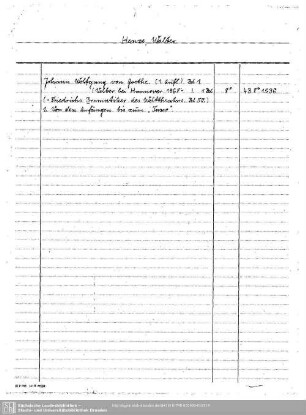 Henze, Walter
Johann Wolfgang von Goethe. (1. Aufl.) Bd 1
(Velber bei Hannover 1968- 1 Bd 8° 43.8° 1530
(= Friedrichs Dramatiker des Welttheaters. Bd 52.)
1. Von den Anfängen bis zum „Tasso".
Sächsische Landesbibliothek -
Staats- und Universitätsbibliothek Dresden